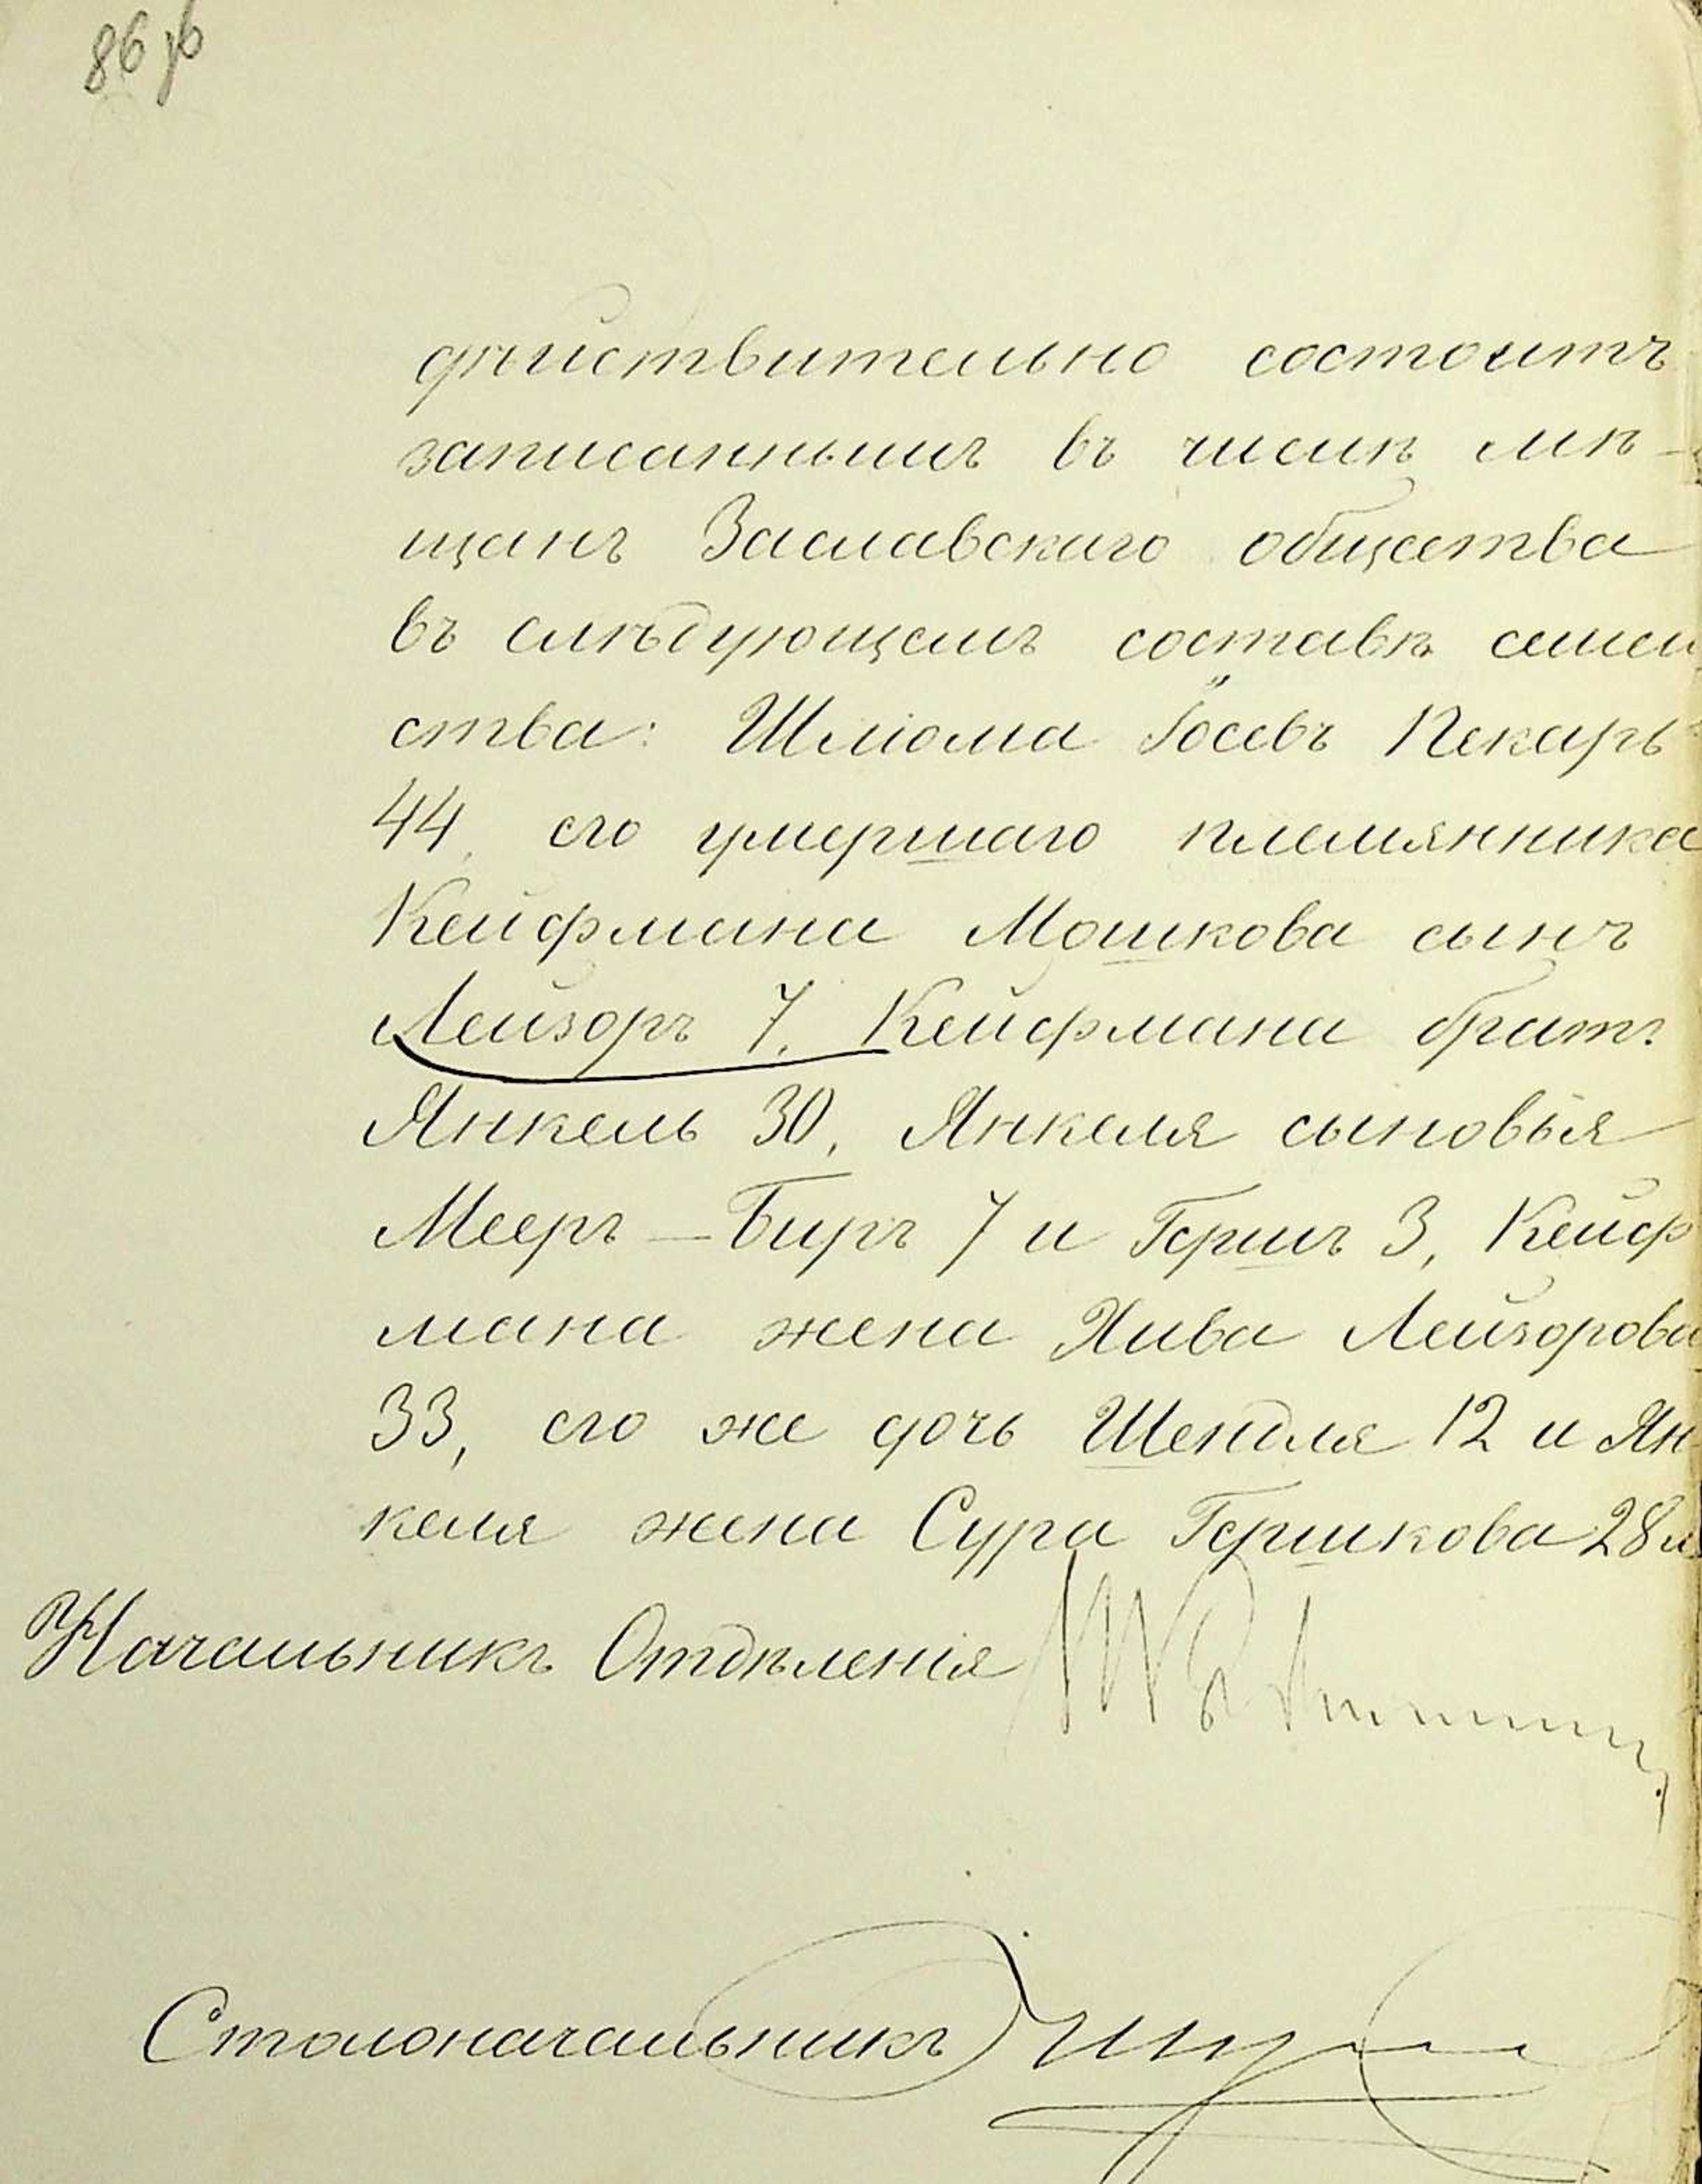 86 об
дѣйствительно состоитъ
записаннымъ въ числѣ мѣ-
щанъ Заславскаго общества
въ слѣдующемъ составѣ семей
ства: Шліома Іосевъ Пекарь
44, его умершаго племянника
Кейфмана Мошкова сынъ
Лейзоръ 7, Кейфмана братъ
Янкель 30, Янкеля сыновья
Мееръ-Биръ 7 и Гершъ 3, Кейф
мана жена Хива Лейзорова
33, его же дочь Шендля 12 и Ян
келя жена Сура Гершкова 28 л.
Начальникъ Отдѣленія
Столоначальникъ